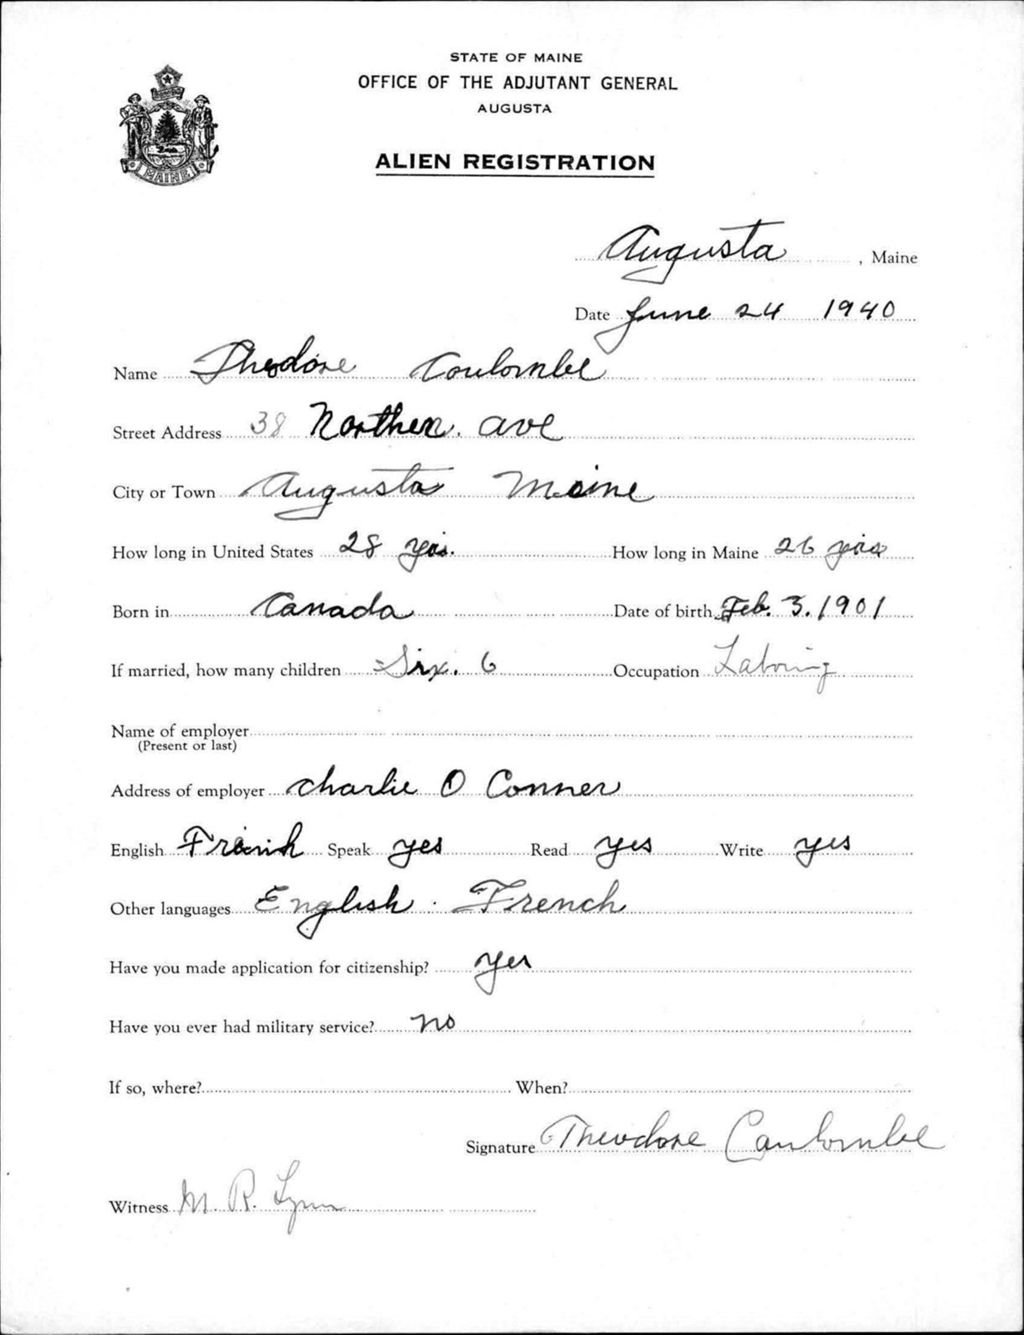 STATE OF MAINE
OFFICE OF THE ADJUTANT GENERAL
AUGUSTA
ALIEN REGISTRATION
MAINE
Augusta, Maine
Date June 24 1940
Name Theodore Coulombe
Street Address 38 Northern Ave
City or Town Augusta Maine
How long in United States 28 yrs. How long in Maine 26 yrs
Born in Canada Date of birth Feb. 3. 1901
If married, how many children Six. 6 Occupation Laboring
Name of employer
(Present or last)
Address of employer Charlie O Conner
English French Speak yes Read yes Write yes
Other languages English. French
Have you made application for citizenship? yes
Have you ever had military service? no
If so, where? When?
Signature Theodore Caulombe
Witness M. R. Lynn